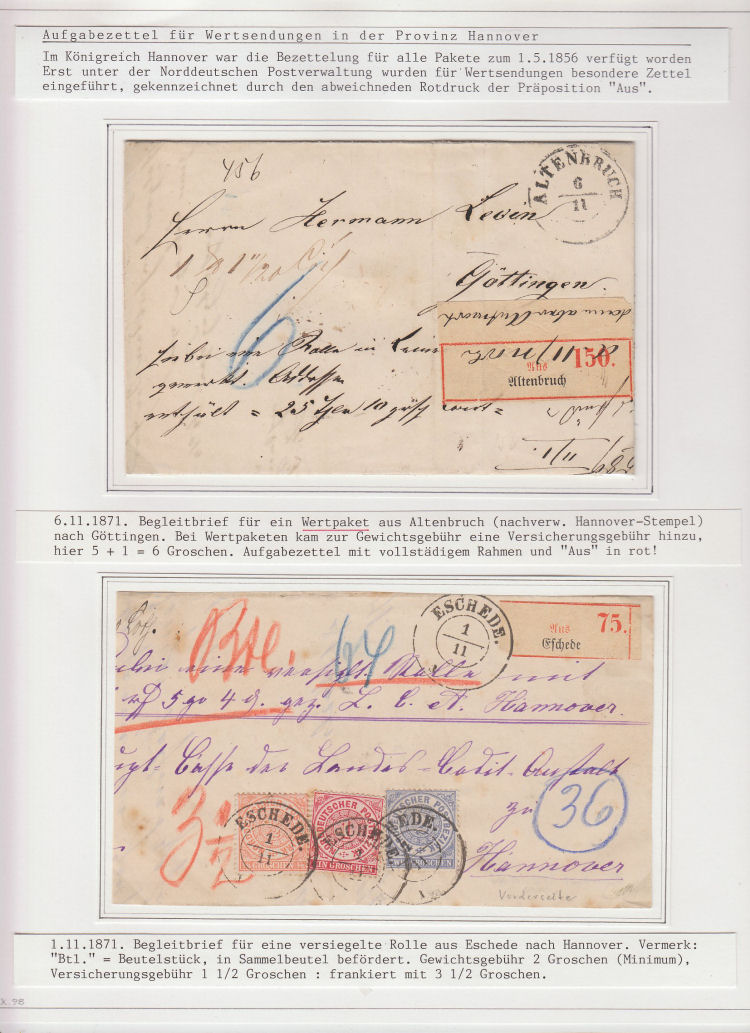 Aufgabezettel für Wertsendungen in der Provinz Hannover
Im Königreich Hannover war die Bezettelung für alle Pakete zum 1.5.1856 verfügt worden
Erst unter der Norddeutschen Postverwaltung wurden für Wertsendungen besondere Zettel
eingeführt, gekennzeichnet durch den abweichneden Rotdruck der Präposition "Aus".
456
ALTENBRUCH
6
11
Herrn Hermann Leven
Göttingen
6
hiebei eine Rolle in Lein
Addresse
enthält = 25 10 wert =
Aus
Altenbruch
150.
6.11.1871. Begleitbrief für ein Wertpaket aus Altenbruch (nachverw. Hannover-Stempel)
nach Göttingen. Bei Wertpaketen kam zur Gewichtsgebühr eine Versicherungsgebühr hinzu,
hier 5 + 1 = 6 Groschen. Aufgabezettel mit vollstädigem Rahmen und "Aus" in rot!
Btl.
64
ESCHEDE.
1
11
Aus
Eschede
75.
eine versieg. Rolle mit
5 go 4 d. gez. L. C. A. Hannover.
upt-Casse der Landes-Credit-Anstalt
zu
36
Hannover
3 1/2
ESCHEDE.
1
11
NORDDEUTSCHER POSTBEZIRK
EIN GROSCHEN
ESCHEDE
ZWEI GROSCHEN
EDE.
Vorderseite
1.11.1871. Begleitbrief für eine versiegelte Rolle aus Eschede nach Hannover. Vermerk:
"Btl." = Beutelstück, in Sammelbeutel befördert. Gewichtsgebühr 2 Groschen (Minimum),
Versicherungsgebühr 1 1/2 Groschen : frankiert mit 3 1/2 Groschen.
X.98